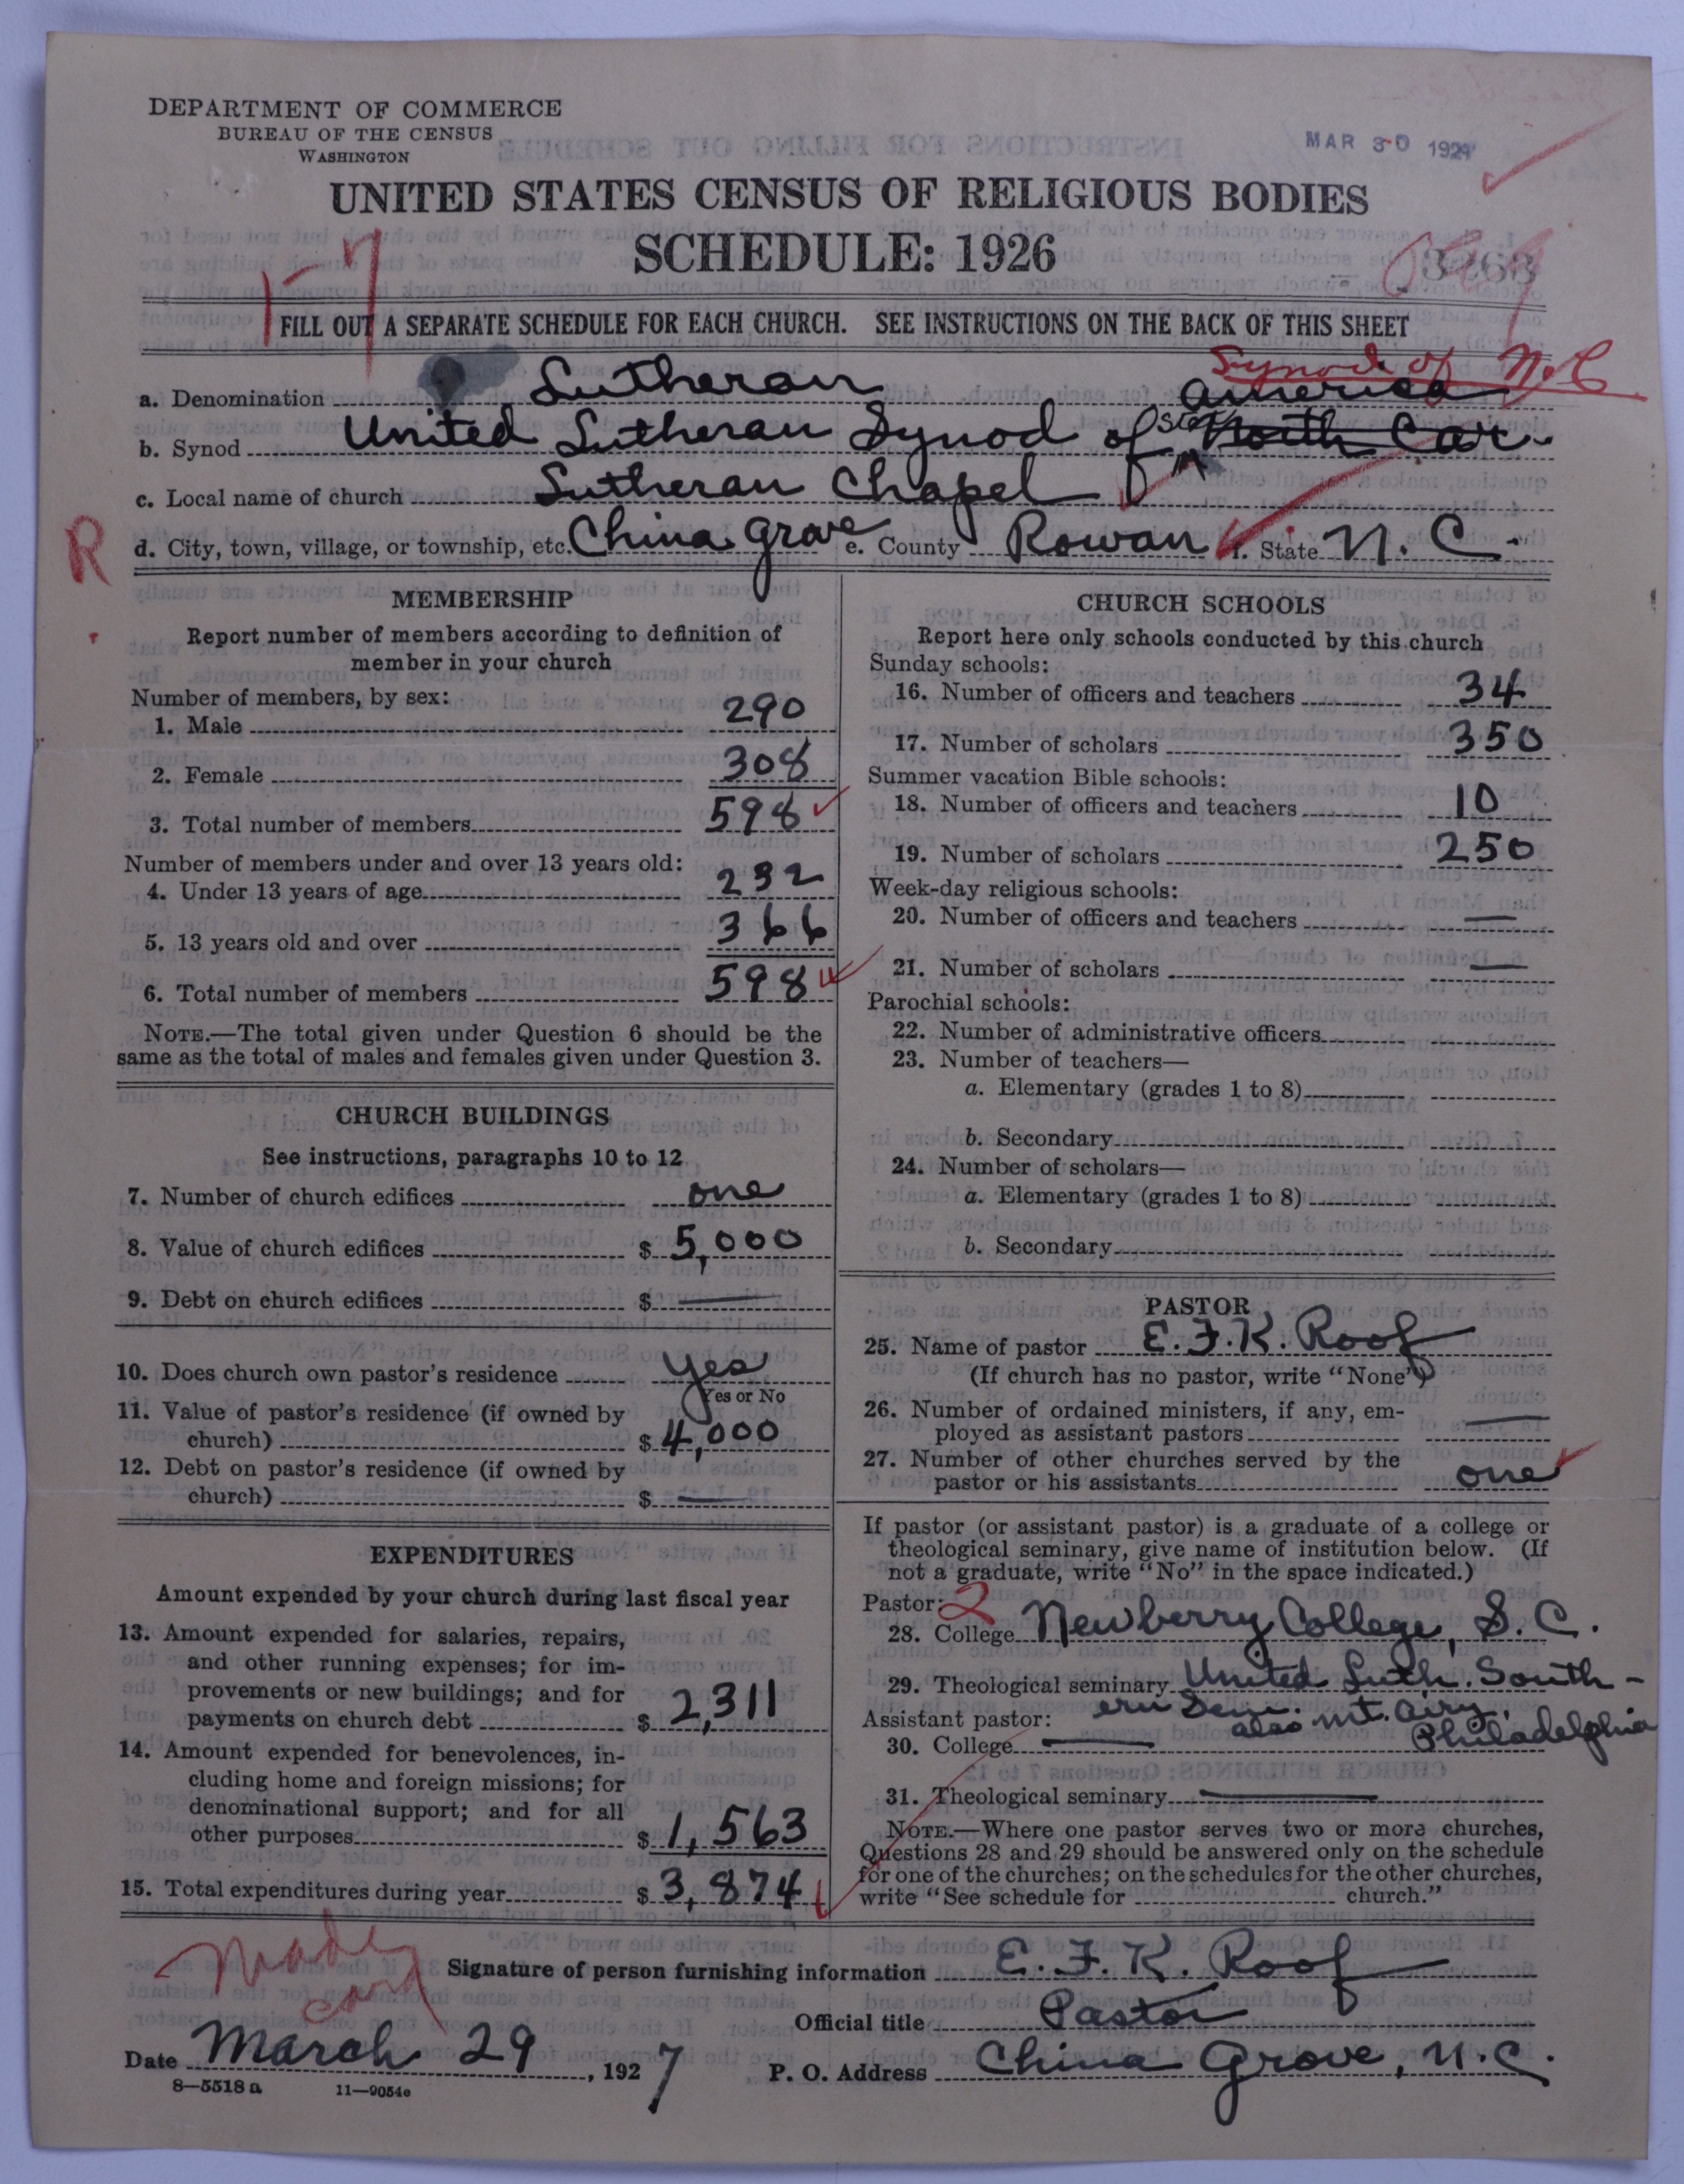 DEPARTMENT OF COMMERCE
BUREAU OF THE CENSUS
WASHINGTON
MAR 30 1927
UNITED STATES CENSUS OF RELIGIOUS BODIES
SCHEDULE: 1926
1-7
FILL OUT A SEPARATE SCHEDULE FOR EACH CHURCH. SEE INSTRUCTIONS ON THE BACK OF THIS SHEET
Synod of N.C
a. Denomination Lutheran
America
b. Synod United Lutheran Synod of North Car.
c. Local name of church Lutheran Chapel
R
d. City, town, village, or township, etc. China Grove e. County Rowan f. State N. C.
MEMBERSHIP
Report number of members according to definition of
member in your church
Number of members, by sex:
1. Male 290
2. Female 308
3. Total number of members 598
Number of members under and over 13 years old:
4. Under 13 years of age 232
5. 13 years old and over 366
6. Total number of members 598
NOTE.—The total given under Question 6 should be the
same as the total of males and females given under Question 3.
CHURCH BUILDINGS
See instructions, paragraphs 10 to 12
7. Number of church edifices one
8. Value of church edifices $ 5,000
9. Debt on church edifices $ —
10. Does church own pastor's residence yes
Yes or No
11. Value of pastor's residence (if owned by
church) $ 4,000
12. Debt on pastor's residence (if owned by
church) $ —
EXPENDITURES
Amount expended by your church during last fiscal year
13. Amount expended for salaries, repairs,
and other running expenses; for im-
provements or new buildings; and for
payments on church debt $ 2,311
14. Amount expended for benevolences, in-
cluding home and foreign missions; for
denominational support; and for all
other purposes $ 1,563
15. Total expenditures during year $ 3,874
CHURCH SCHOOLS
Report here only schools conducted by this church
Sunday schools:
16. Number of officers and teachers 34
17. Number of scholars 350
Summer vacation Bible schools:
18. Number of officers and teachers 10
19. Number of scholars 250
Week-day religious schools:
20. Number of officers and teachers —
21. Number of scholars —
Parochial schools:
22. Number of administrative officers
23. Number of teachers—
a. Elementary (grades 1 to 8)
b. Secondary
24. Number of scholars—
a. Elementary (grades 1 to 8)
b. Secondary
PASTOR
25. Name of pastor E. F. K. Roof
(If church has no pastor, write "None")
26. Number of ordained ministers, if any, em-
ployed as assistant pastors —
27. Number of other churches served by the
pastor or his assistants one
If pastor (or assistant pastor) is a graduate of a college or
theological seminary, give name of institution below. (If
not a graduate, write "No" in the space indicated.)
Pastor: 2
28. College Newberry College, S. C.
29. Theological seminary United Luth. South-
ern Sem.
also Mt. Airy,
Philadelphia
Assistant pastor:
30. College —
31. Theological seminary —
NOTE.—Where one pastor serves two or more churches,
Questions 28 and 29 should be answered only on the schedule
for one of the churches; on the schedules for the other churches,
write "See schedule for church."
Made
card
Signature of person furnishing information E. F. K. Roof
Official title Pastor
Date March 29, 1927 P. O. Address China Grove, N. C.
8—5518 a 11—9054e